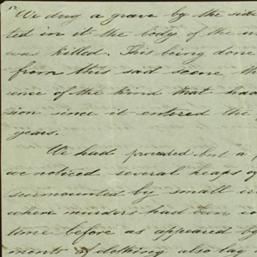 "We dug a grave by the side
ted in it the body of the
was killed. This being done
from this sad scene th
ence of the kind that had
sion since it entered the
years.
We had proceeded but a
we noticed several heaps of
surmounted by small
where murders had been
time before as appeared by
of clothing also lay